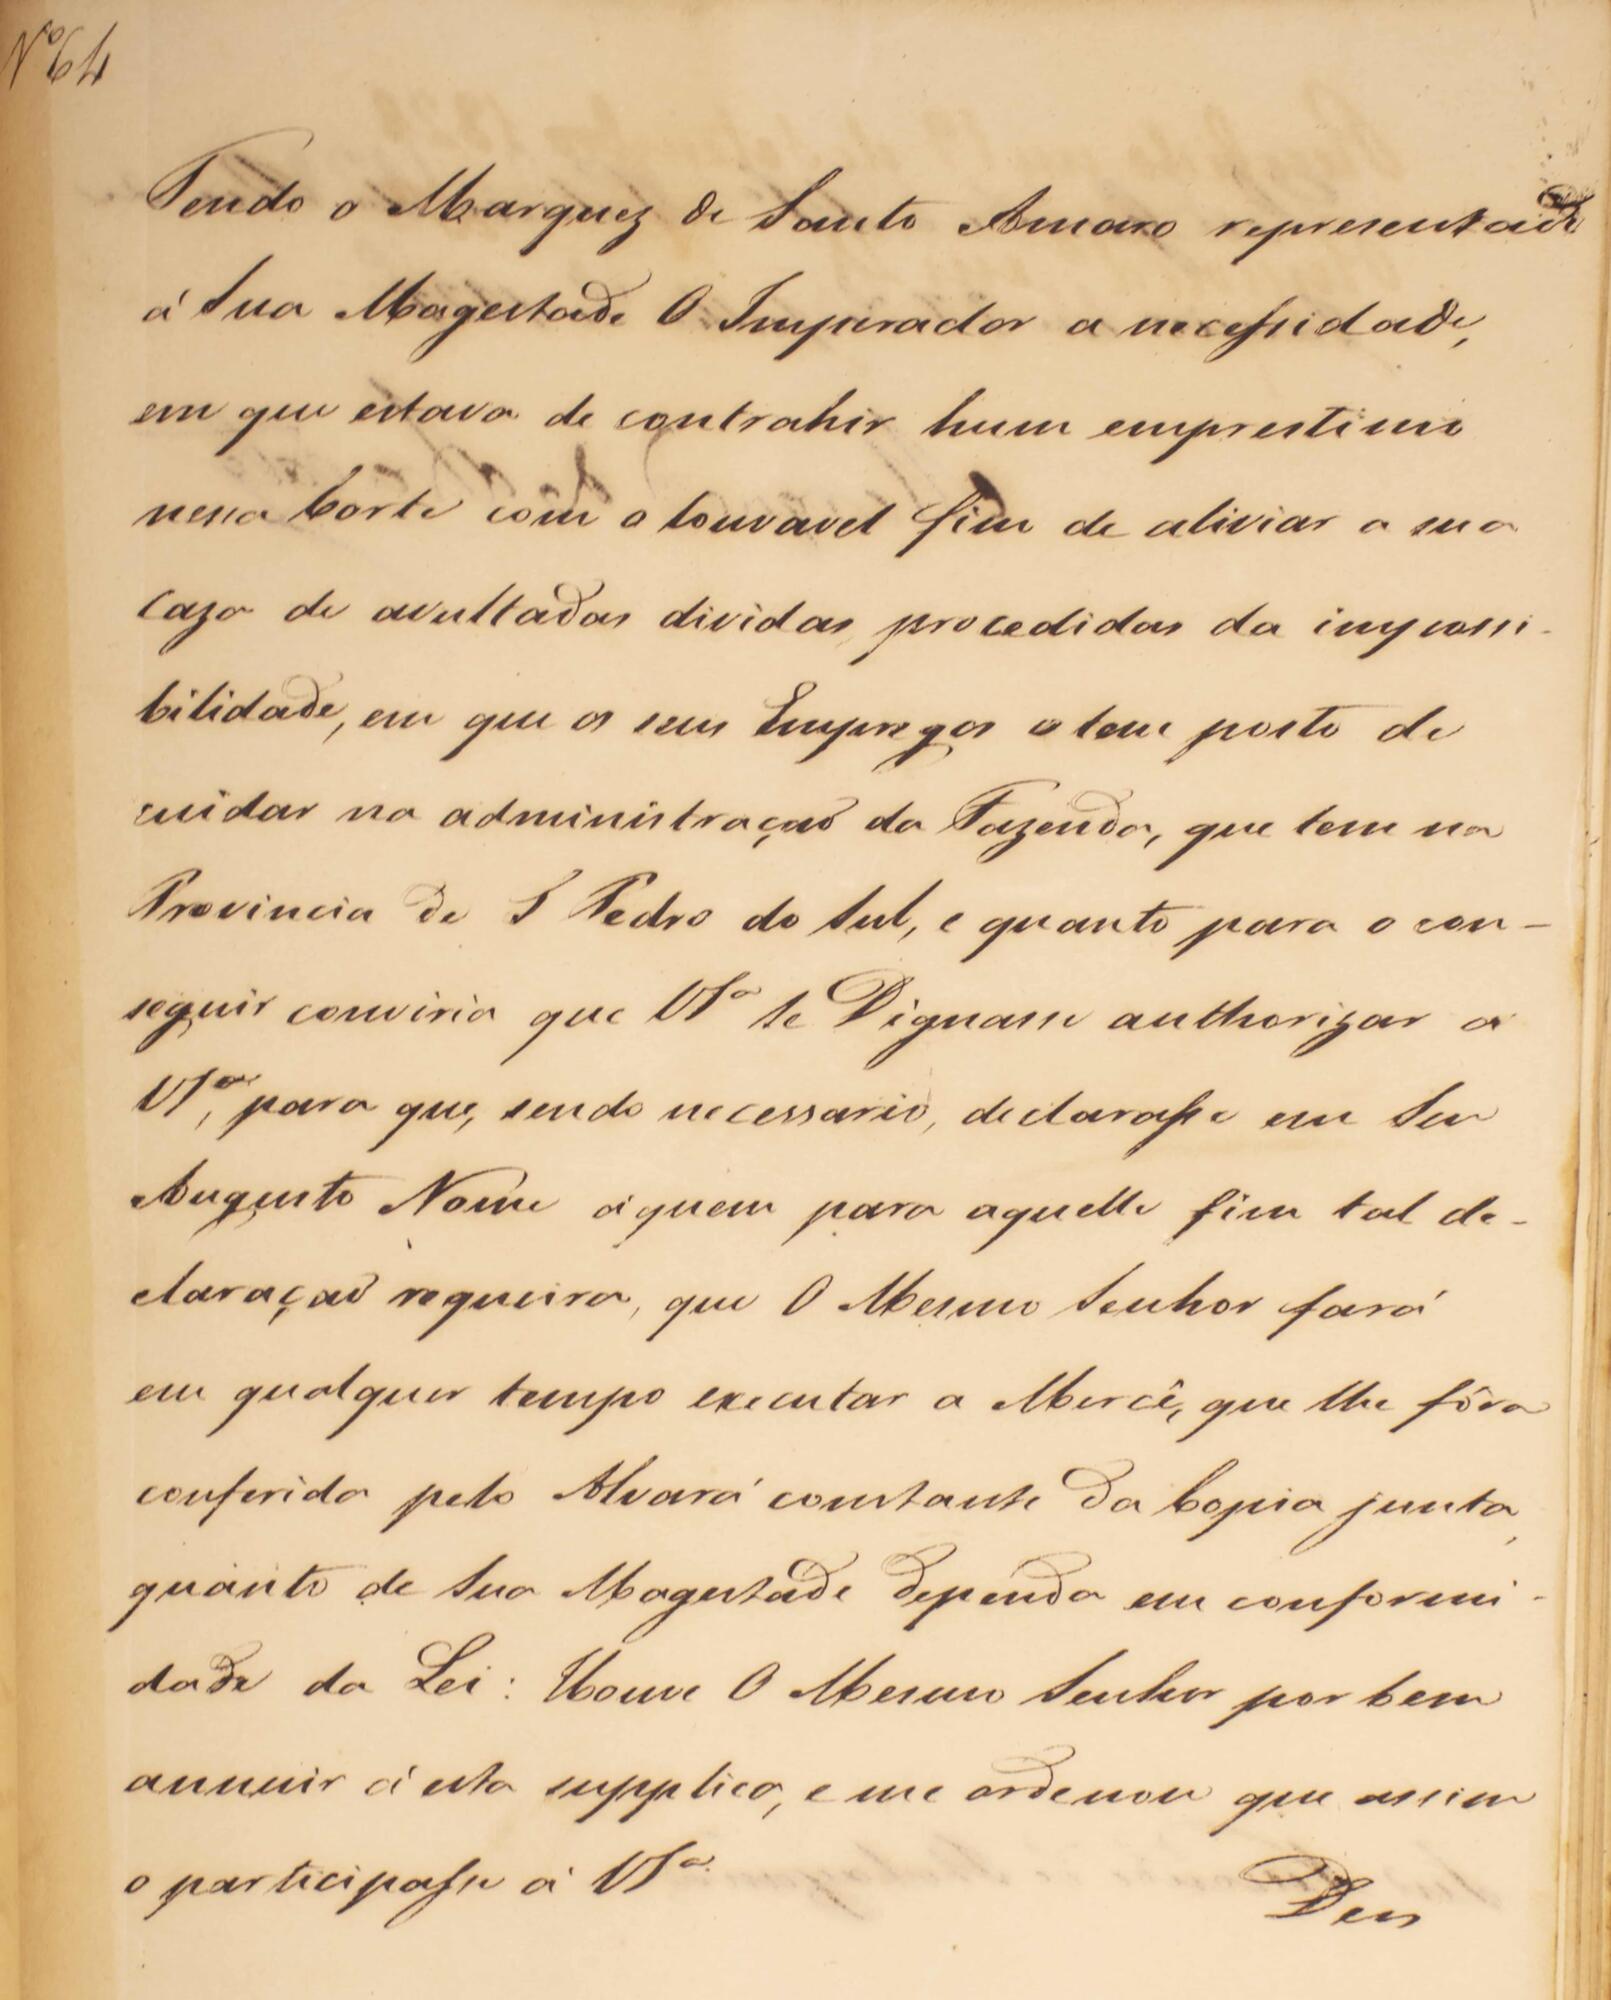 Nº 64
Tendo o Marquez de Santo Amaro representado
á Sua Magestade O Imperador a necessidade,
em que estava de contrahir hum emprestimo
nessa Corte com o louvavel fim de aliviar a sua
caza de avultadas dividas procedidas da impossi-
bilidade, em que os seus Empregos o tem posto de
cuidar na administração da Fazenda, que tem na
Provincia de S Pedro do Sul, e quanto para o con-
seguir conviria que VSª Se Dignasse authorizar a
VSª, para que, sendo necessario, declarasse em Seu
Augusto Nome á quem para aquelle fim tal de-
claração requeira, que O Mesmo Senhor fará
em qualquer tempo executar a Mercê, que lhe fôra
conferida pelo Alvará constante da Copia junta,
quanto de Sua Magestade dependa em conformi-
dade da Lei: Houve O Mesmo Senhor por bem
annuir á esta supplica, e me ordenou que assim
o participasse á VSª
Deus